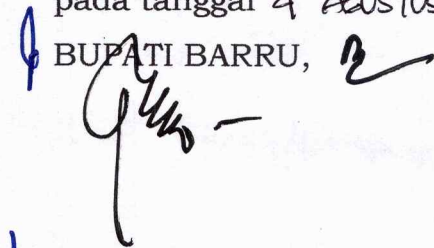 pada tanggal 4 AGUSTUS
BUPATI BARRU,